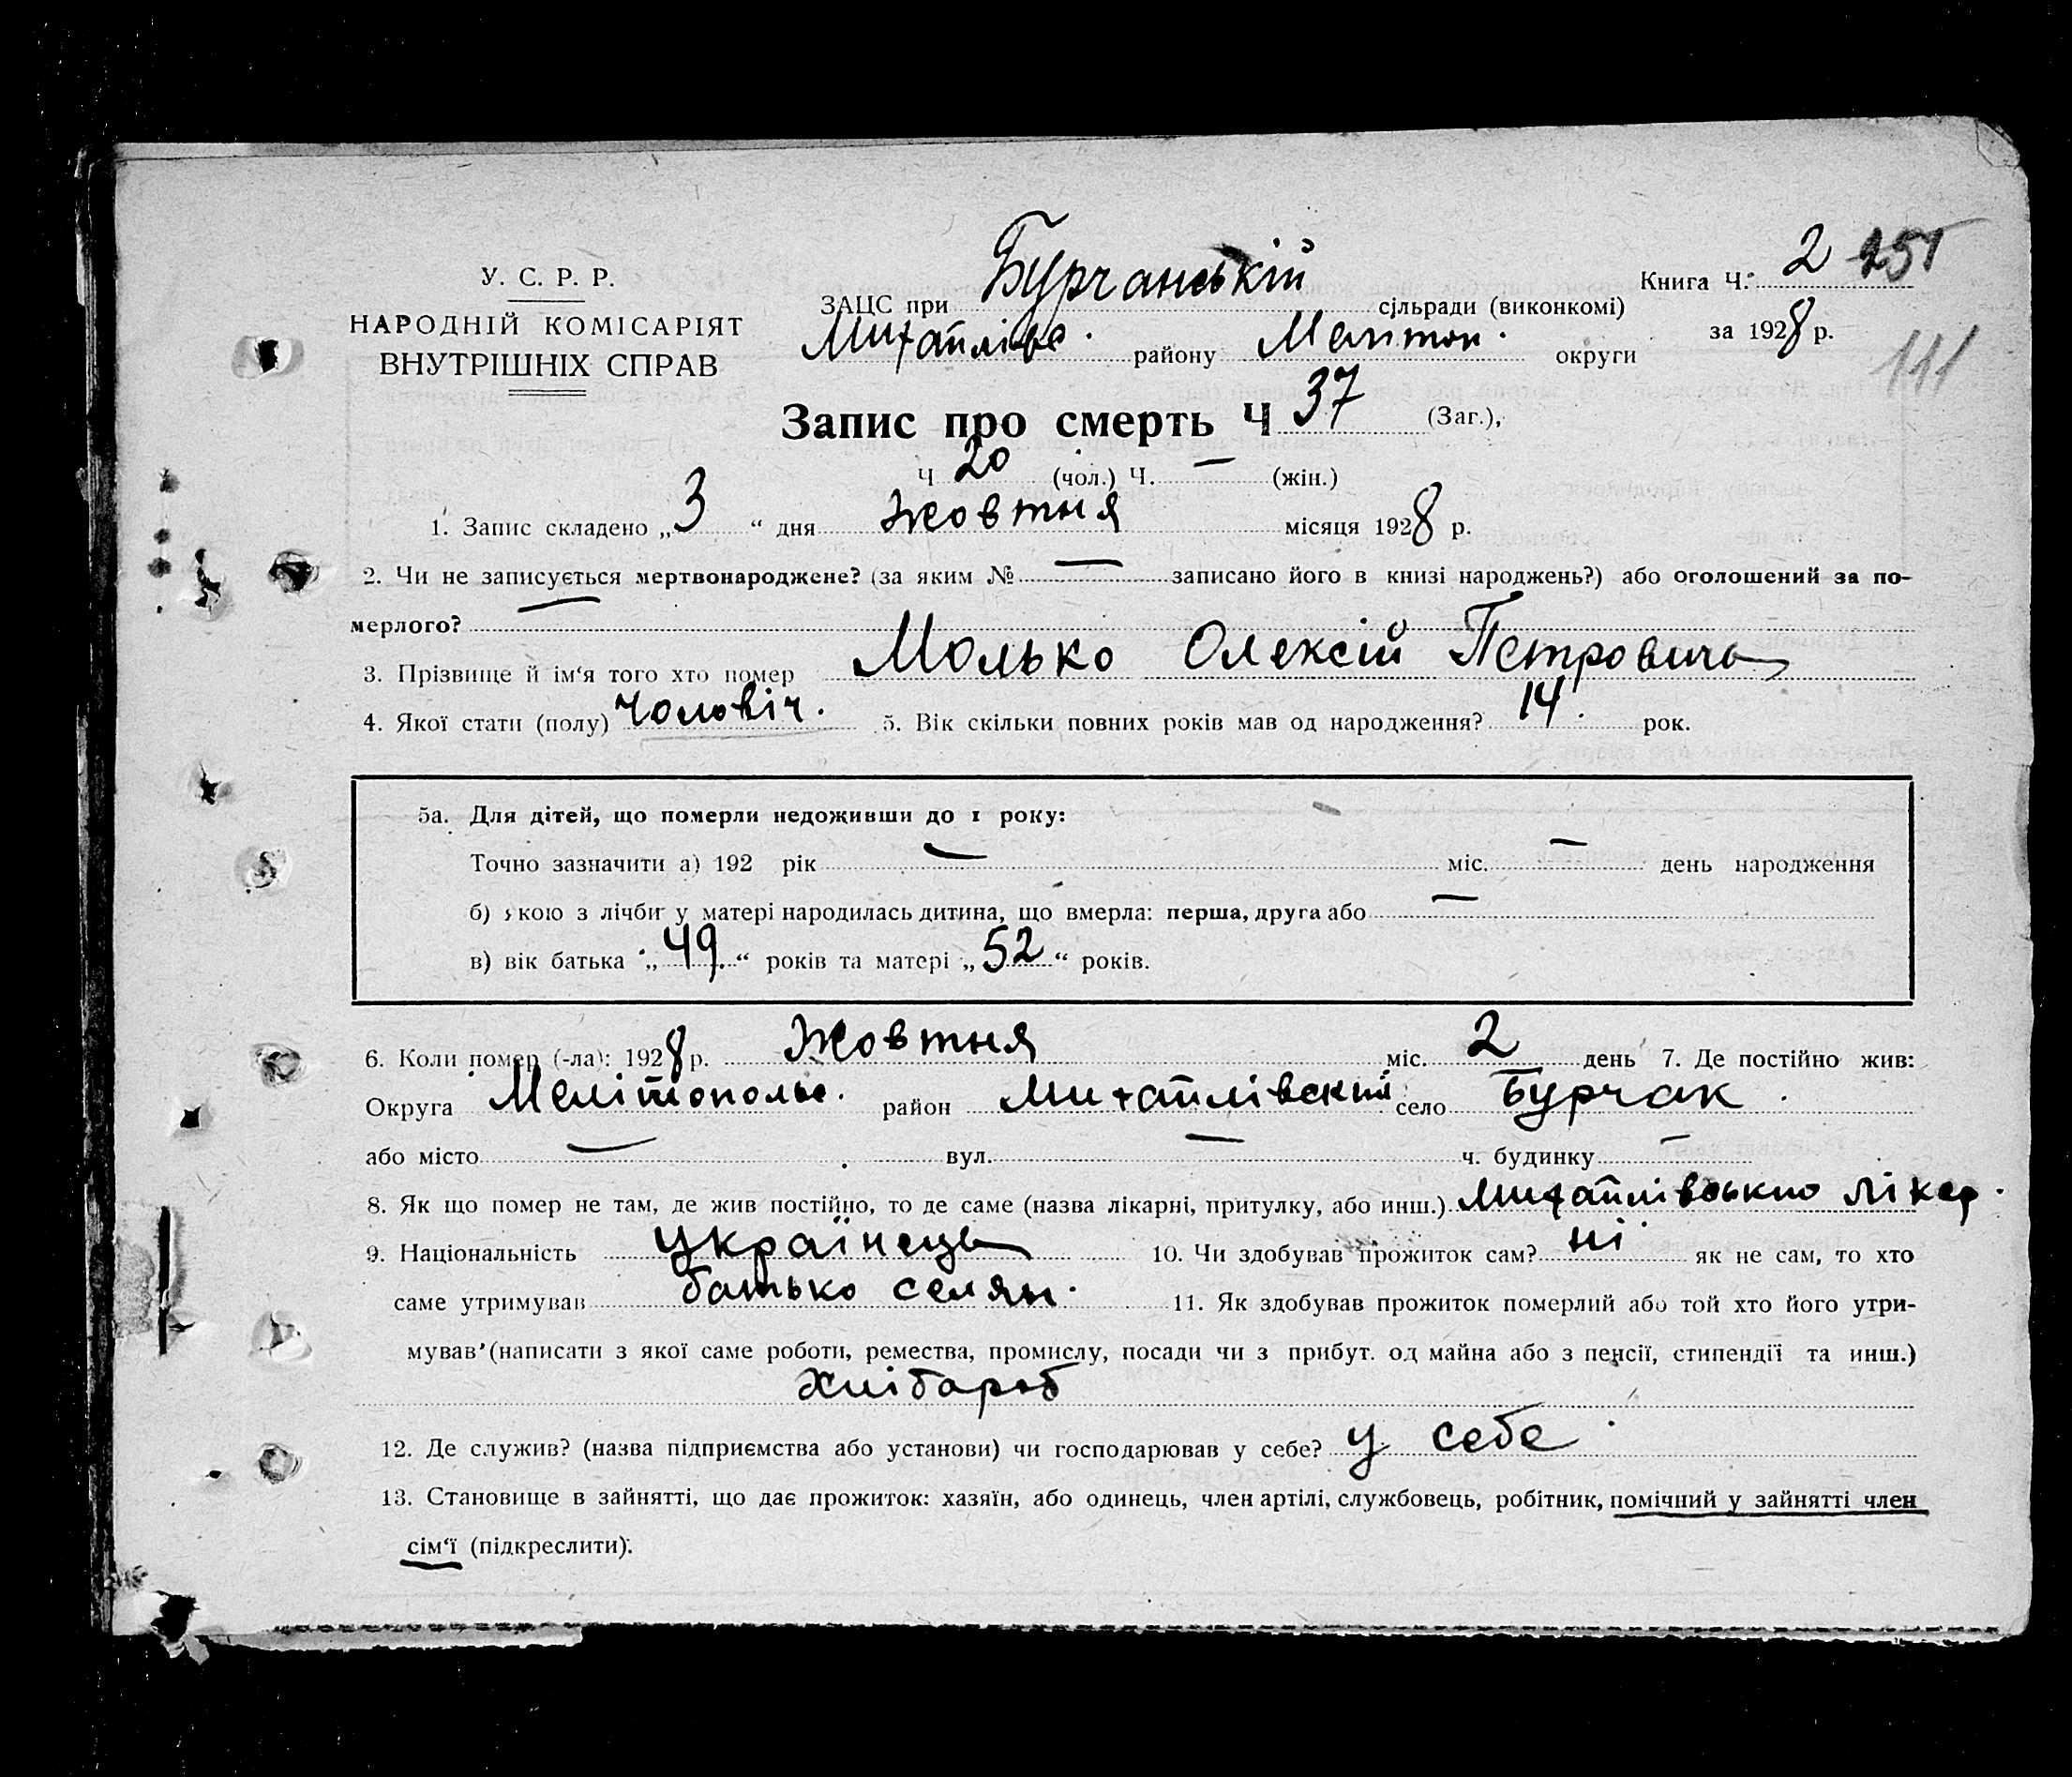 У. С. Р. Р.
НАРОДНІЙ КОМІСАРІЯТ
ВНУТРІШНІХ СПРАВ
ЗАЦС при Бурчанській сільради (виконкомі)
Михайлівс. району Меліпол. округи
Книга Ч. 2 251
за 1928 р.
141
Запис про смерть Ч 37 (Заг.),
Ч 20 (чол.) Ч. — (жін.)
1. Запис складено „3“ дня Жовтня місяця 1928 р.
2. Чи не записується мертвонароджене? (за яким № — записано його в книзі народжень?) або оголошений за по-
мерлого?
3. Прізвище й ім‘я того хто помер Молько Олексій Петрович
4. Якої стати (полу) Чоловіч. 5. Вік скільки повних років мав од народження? 14. рок.
5а. Для дітей, що померли недоживши до 1 року:
Точно зазначити а) 192 рік — міс. — день народження
б) якою з лічби у матері народилась дитина, що вмерла: перша, друга або —
в) вік батька „49.“ років та матері „52“ років.
6. Коли помер (-ла): 1928 р. Жовтня міс. 2 день 7. Де постійно жив:
Округа Мелітопольс. район Михайлівский село Бурчак.
або місто — вул. — ч. будинку —
8. Як що помер не там, де жив постійно, то де саме (назва лікарні, притулку, або инш.) Михайлівськио лікар.
9. Національність Українець 10. Чи здобував прожиток сам? ні як не сам, то хто
саме утримував батько селян. 11. Як здобував прожиток померлий або той хто його утри-
мував (написати з якої саме роботи, ремества, промислу, посади чи з прибут. од майна або з пенсії, стипендії та инш.)
Хлібароб
12. Де служив? (назва підприємства або установи) чи господарював у себе? у себе.
13. Становище в зайнятті, що дає прожиток: хазяїн, або одинець, член артілі, службовець, робітник, помічний у зайнятті член
сім‘ї (підкреслити).